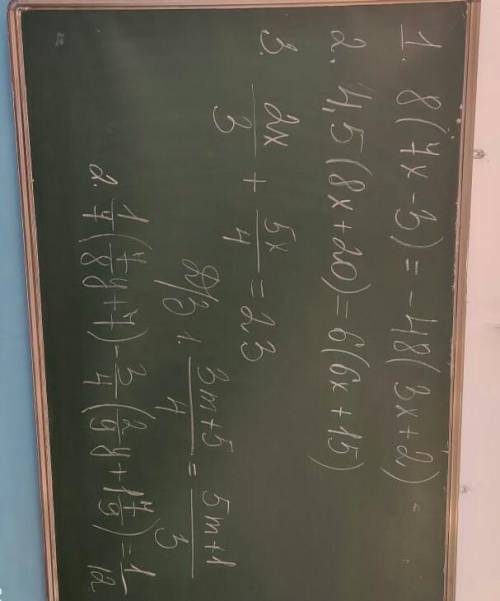 1. 8(7x-3) = -48(3x+2)
2. 4,5(8x+20) = 6(6x+15)
3. 2x/3 + 5x/4 = 23
Д/З 1. (3m+5)/4 = (5m+1)/3
2. 1/7(7/8y+7) - 3/4(2/9y+1 7/9) = 1/12